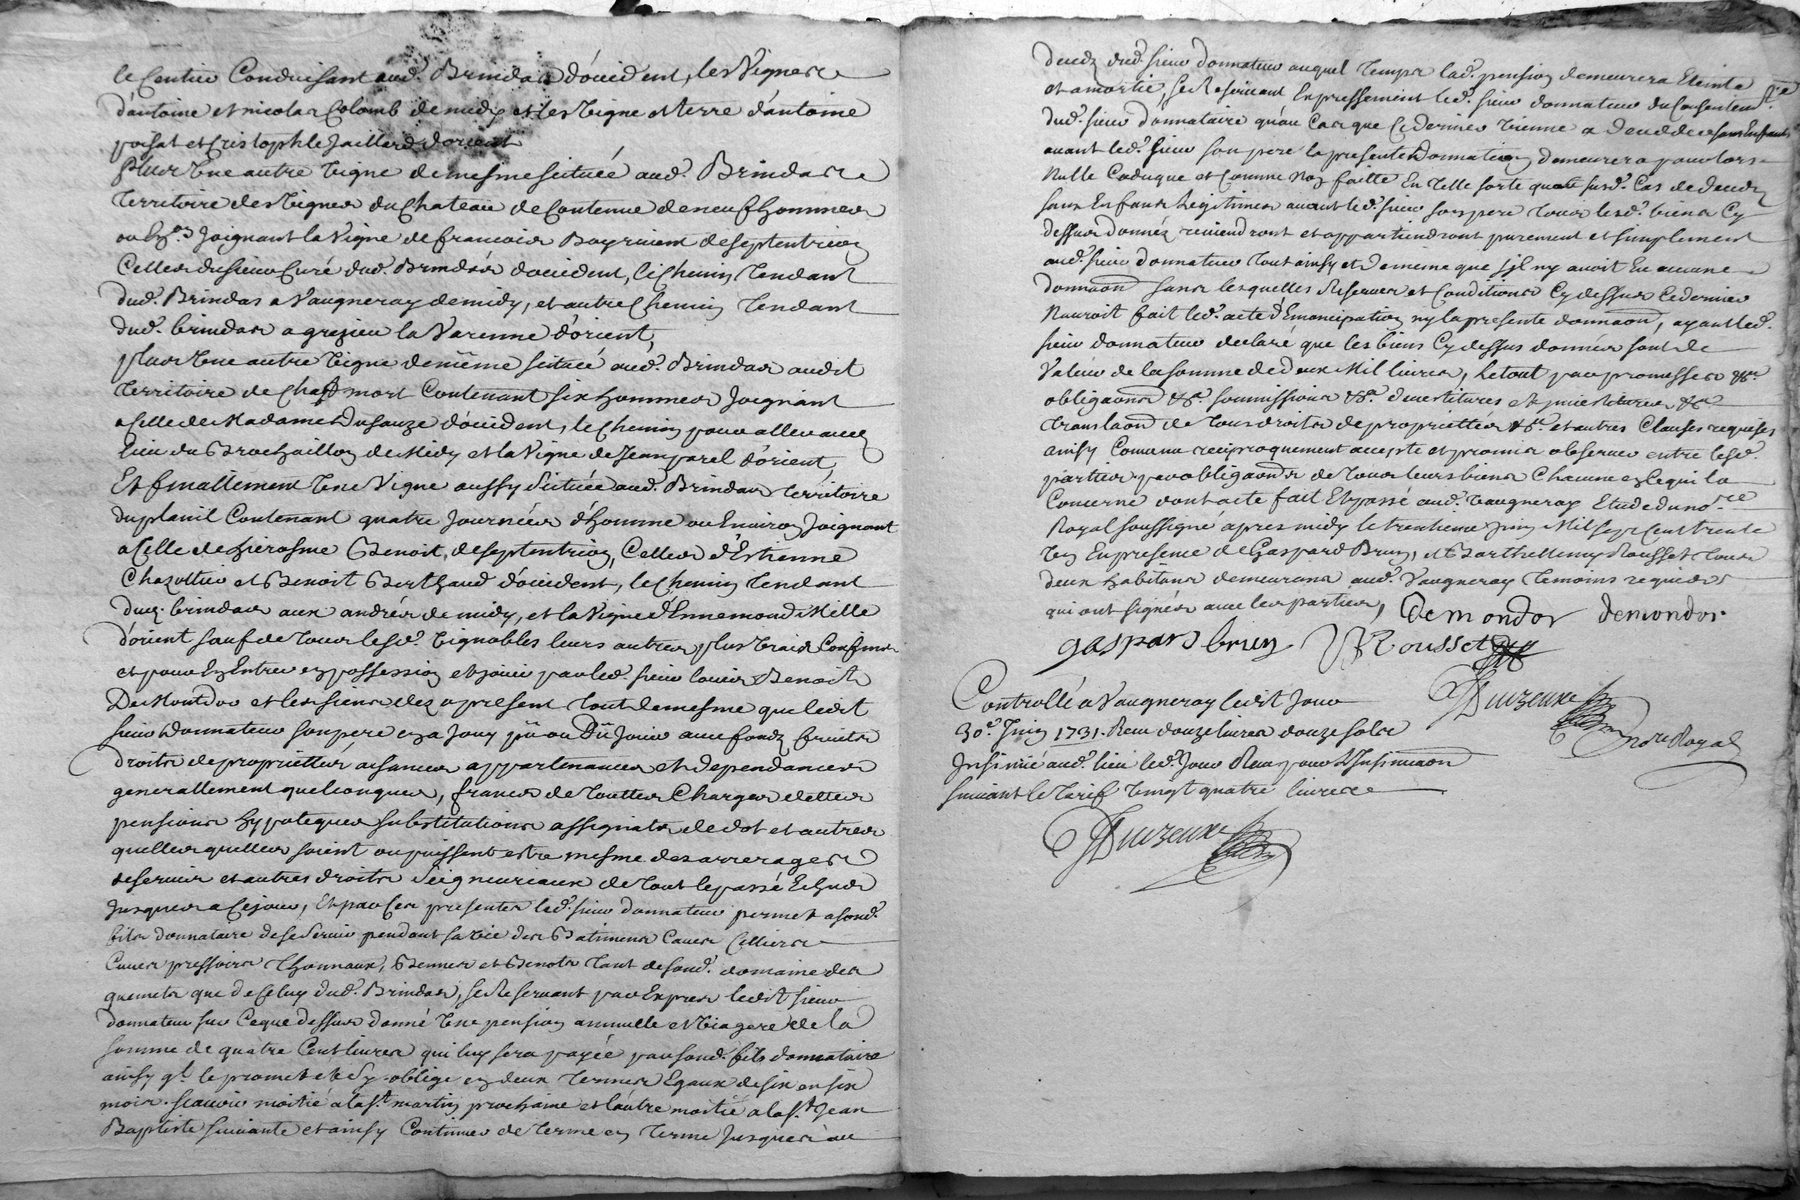 le sentier Conduisant aud. Brindas d'occident, les Vignes
d'antoine et nicolas Colomb de midy et les vigne et terre d'antoine
poisat et Cristophle Jaillard d'orient
Plus une autre vigne de mesme scituée aud. Brindas
Territoire des vignes du Chateau de Contenue de neuf hommees
ou Environ Joignant la Vigne de francois Bayriviere de septentrion
Celles du sieur Curé dud. Brindas d'occident, le Chemin Tendant
dud. Brindas a Vaugneray de midy, et autre Chemin Tendant
dud. brindas a grezieu la Varenne d'orient,
plus une autre vigne de même scituée aud. Brindas audit
Territoire de Contenant six hommees Joignant
a Celle de Madame Dusauze d'occident, le Chemin pour aller aud.
lieu du Brochaillon de Midy et la Vigne de Jean parel d'orient,
Et finallement Une Vigne aussy scituée aud. Brindas Territoire
du planil Contenant quatre Journées d'homme ou Environ Joignant
a Celle de hierosme Benoit, de septentrion, Celles d'Estienne
Chazottier et Benoit Berthaud d'occident, le Chemin Tendant
dud. brindas aux andrés de midy, et la Vigne d'Ennemond Mille
d'orient sauf de Tous lesd. vignobles leurs autres plus vrais Confins
et pour En Entrer en possession et jouir par led. sieur louis Benoit
De Mondor et les siens dez a present Tout de mesme que ledit
sieur Donnateur son pere en a Jouy pû ou Dû Jouir avec fonds fruits
droits de proprietés, aisances appartenances et dependances
generallement quelconques, francs de Touttes Charges dettes
pensions hypoteques substitutions assignats de dot et autres
quelles quelles soient ou puissent estre mesme des arrerages
de servis et autres droits Seigneuriaux de Tout le passé Echus
Jusques a Ce jour, Et par Ces presentes led. sieur donnateur permet a sond.
fils donnataire de se servir pendant sa vie des Batimens Caves Celliers
Cuves pressoirs Thonnaux, Bennes et Benots Tant de sond. domaine des
quemets que de Celuy dud. Brindas, se Reservant par Expres ledit sieur
donnateur sur Ce que dessus donné Une pension annuelle et viagere de la
somme de quatre Cent livres qui luy sera payée par sond. fils donnataire
ainsy ql. le promet et s'y oblige en deux Termes Egaux de six en six
mois. scavoir moitié a la St. martin prochaine et l'autre moitié a la St. Jean
Baptiste suivante et ainsy Continuer de Terme en Terme Jusques au
decedz dud. sieur donnateur auquel Temps lad. pension demeurera Eteinte
et amortie, se Reservant Expressement led. sieur donnateur du Consentemt.
dud. sieur donnataire qu'au Cas que Ce dernier vienne a deceder sans Enfants
avant led. sieur son pere la presente Donnation demeurera pour lors
nulle Caduque et Comme non faitte En Telle sorte qu'au susd. Cas de decedz
sans Enfans legitimes avant led. sieur son pere Tous lesd. biens Cy
dessus donnéz reviendront et appartiendront purement et simplement
aud. sieur donnateur Tout ainsy et de meme que s'il n'y avoit Eu aucune
donnaon sans lesquelles Reserves et Conditions Cy dessus Ce dernier
N'auroit fait led. acte d'Emancipation ny la presente donnaon, ayant led.
sieur donnateur declaré que les biens Cy dessus donnés sont de
Valeur de la somme de deux Mil livres, Le tout par promesses &c.
obligaons &c. soumissions &c. devestitures et &c.
Translaon de Tous droits de proprietté &c. et autres Clauses requises
ainsy Convenu reciproquement accepté et promis observer entre lesd.
parties par obligaons de Tous leurs biens Chacun en Ce qui le
Concerne dont acte fait Et passé aud. Vaugneray Etude du nore.
Royal soussigné apres midy le trentieme Juin Mil sept Cent trente
Un En presence de Gaspard Brun, et Barthellemy Rousset Tous
deux habitans demeurans aud. Vaugneray Temoins requis
qui ont signés avec les parties, Demondor demondor
gaspard brun Rousset
Controllé a Vaugneray ledit Jour
30e. Juin 1731. Reçu douze livres douze sols
Insinué aud. lieu led. Jour Reçu pour l'Insinuaon
suivant le Tarif Vingt quatre livres
Duizeux
nore Royal
Duizeux